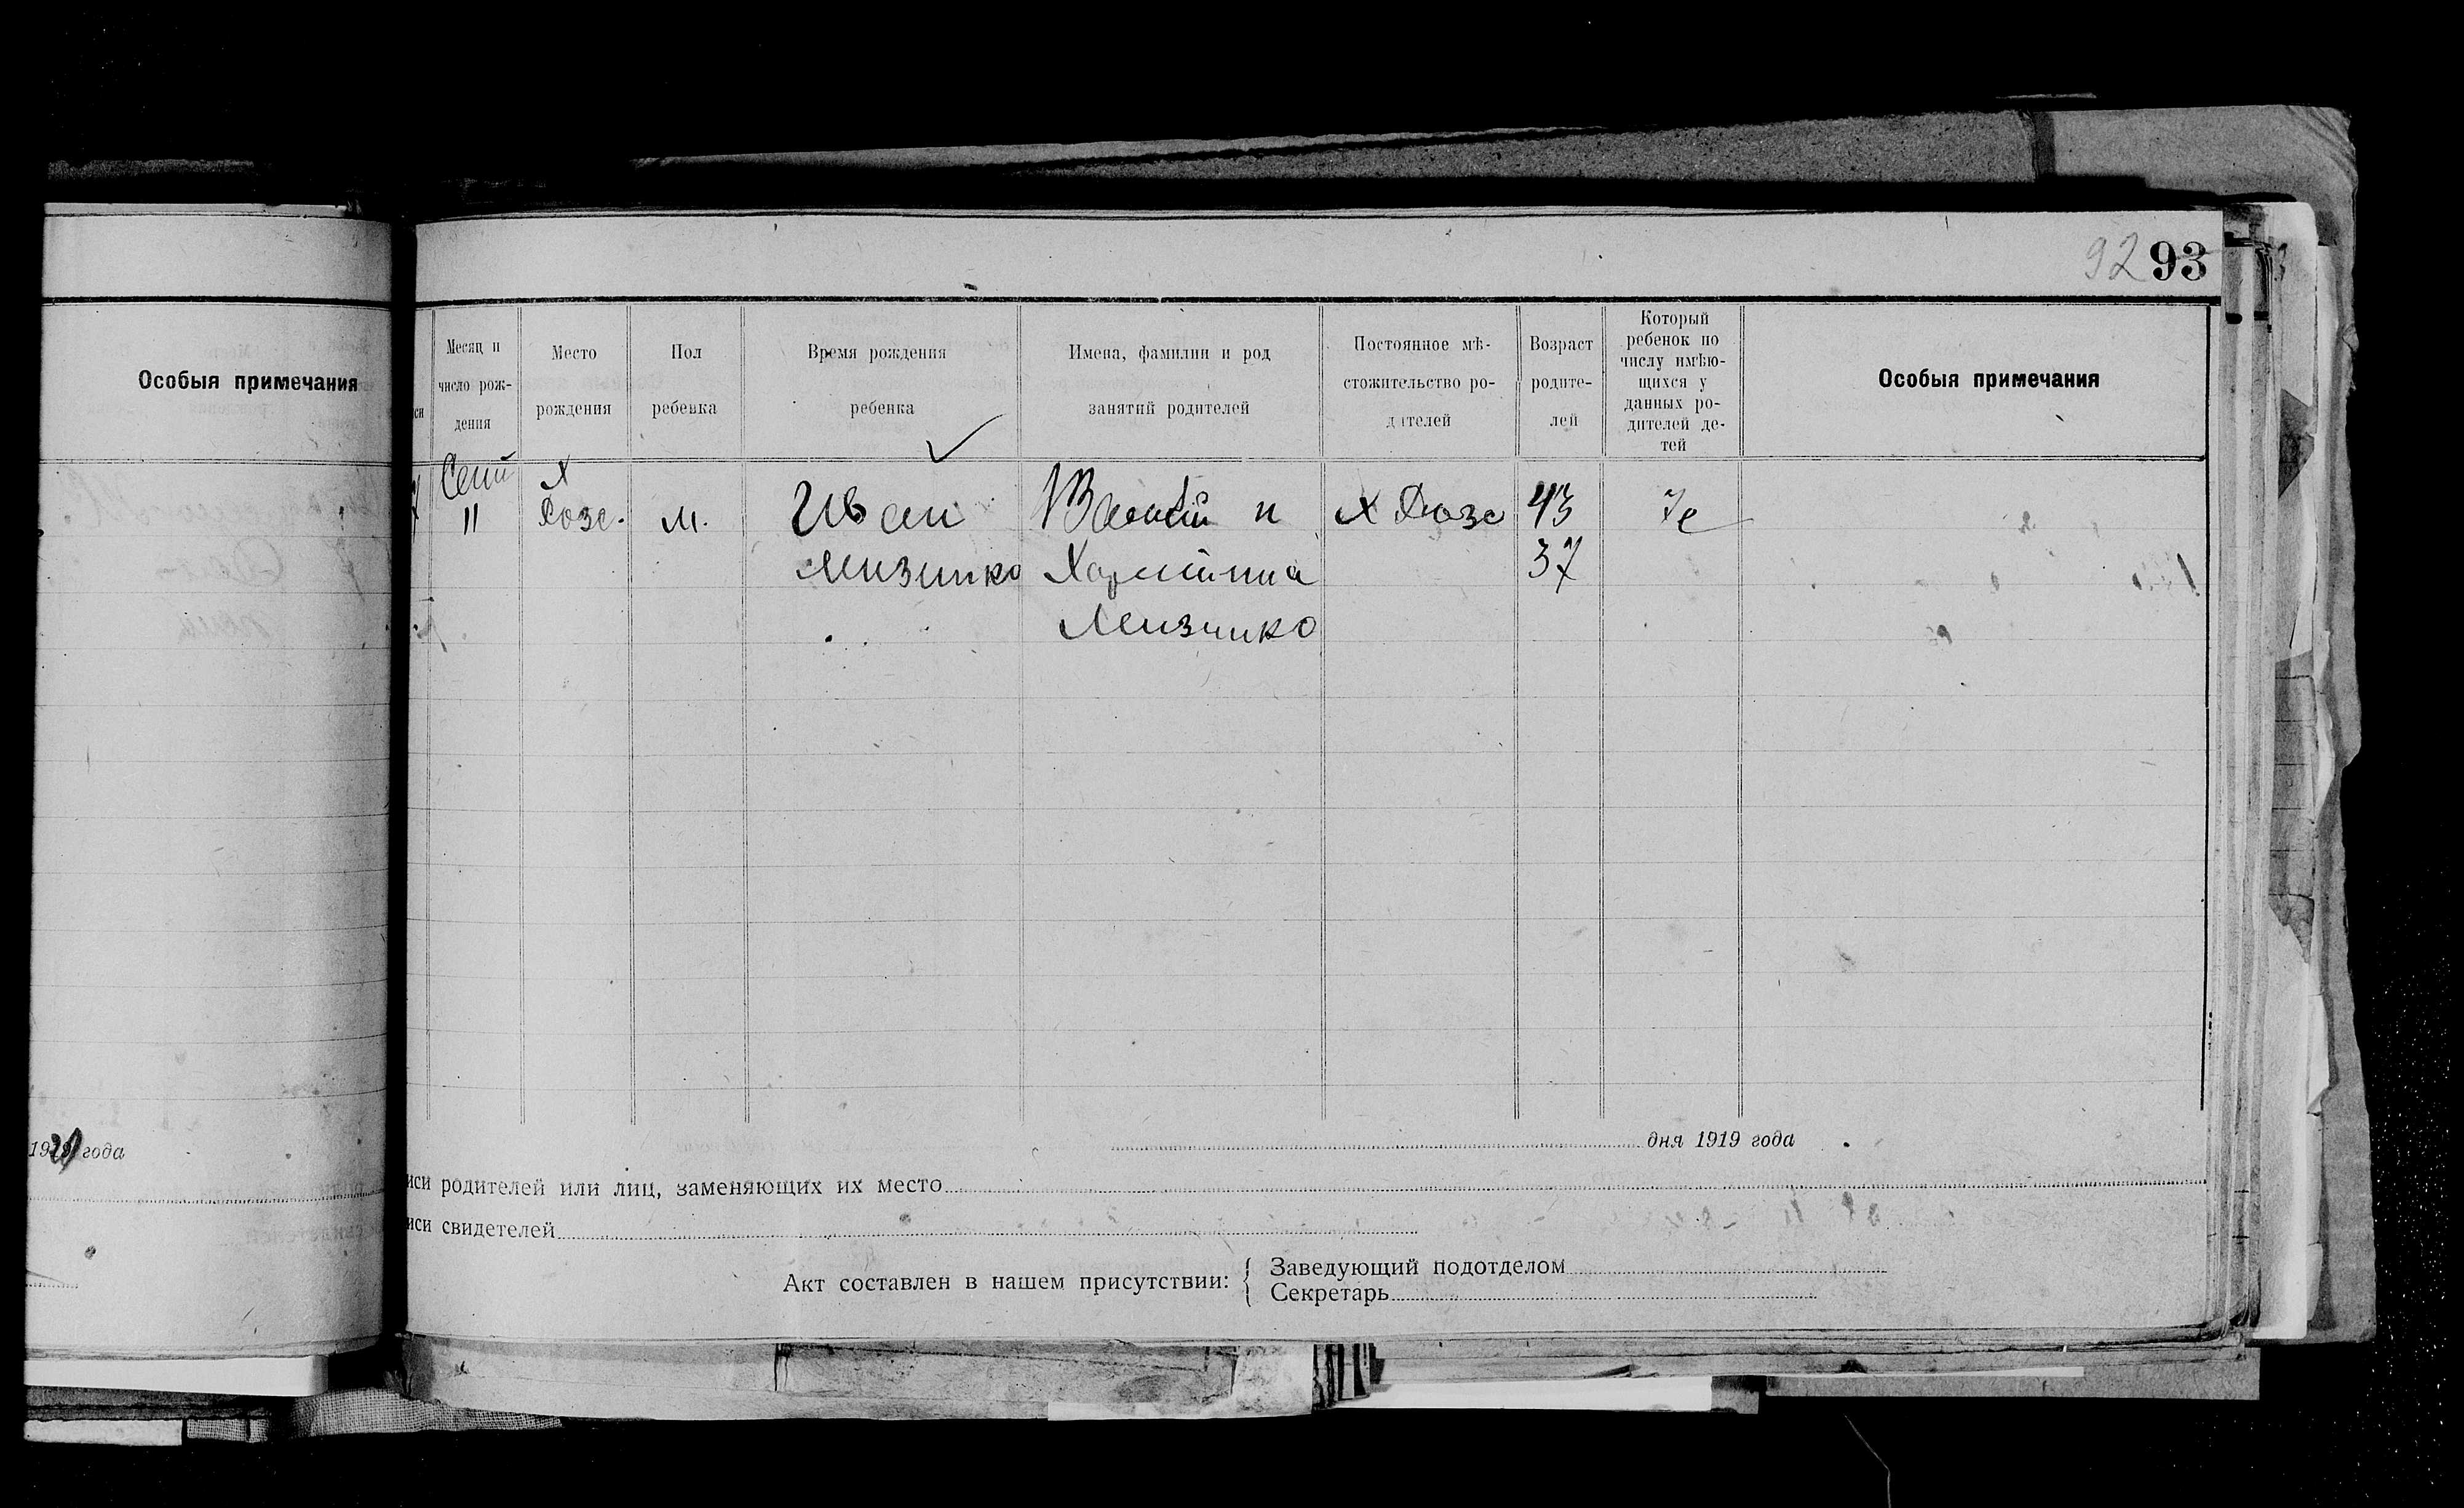 92 93
Особыя примечания
си
Месяц и
число рож-
дения
Место
рождения
Пол
ребенка
Время рождения
ребенка
Имена, фамилии и род
занятий родителей
Постоянное мѣ-
стожительство ро-
дителей
Возраст
родите-
лей
Который
ребенок по
числу имѣю-
щихся у
данных ро-
дителей де-
тей
Особыя примечания
7
Сент
11
Х
м.
Иван
Мизинко
и
Харитина
Мизинко
Х
43
37
7е
года
дня 1919 года
иси родителей или лиц, заменяющих их место
иси свидетелей
Акт составлен в нашем присутствии:
Заведующий подотделом
Секретарь